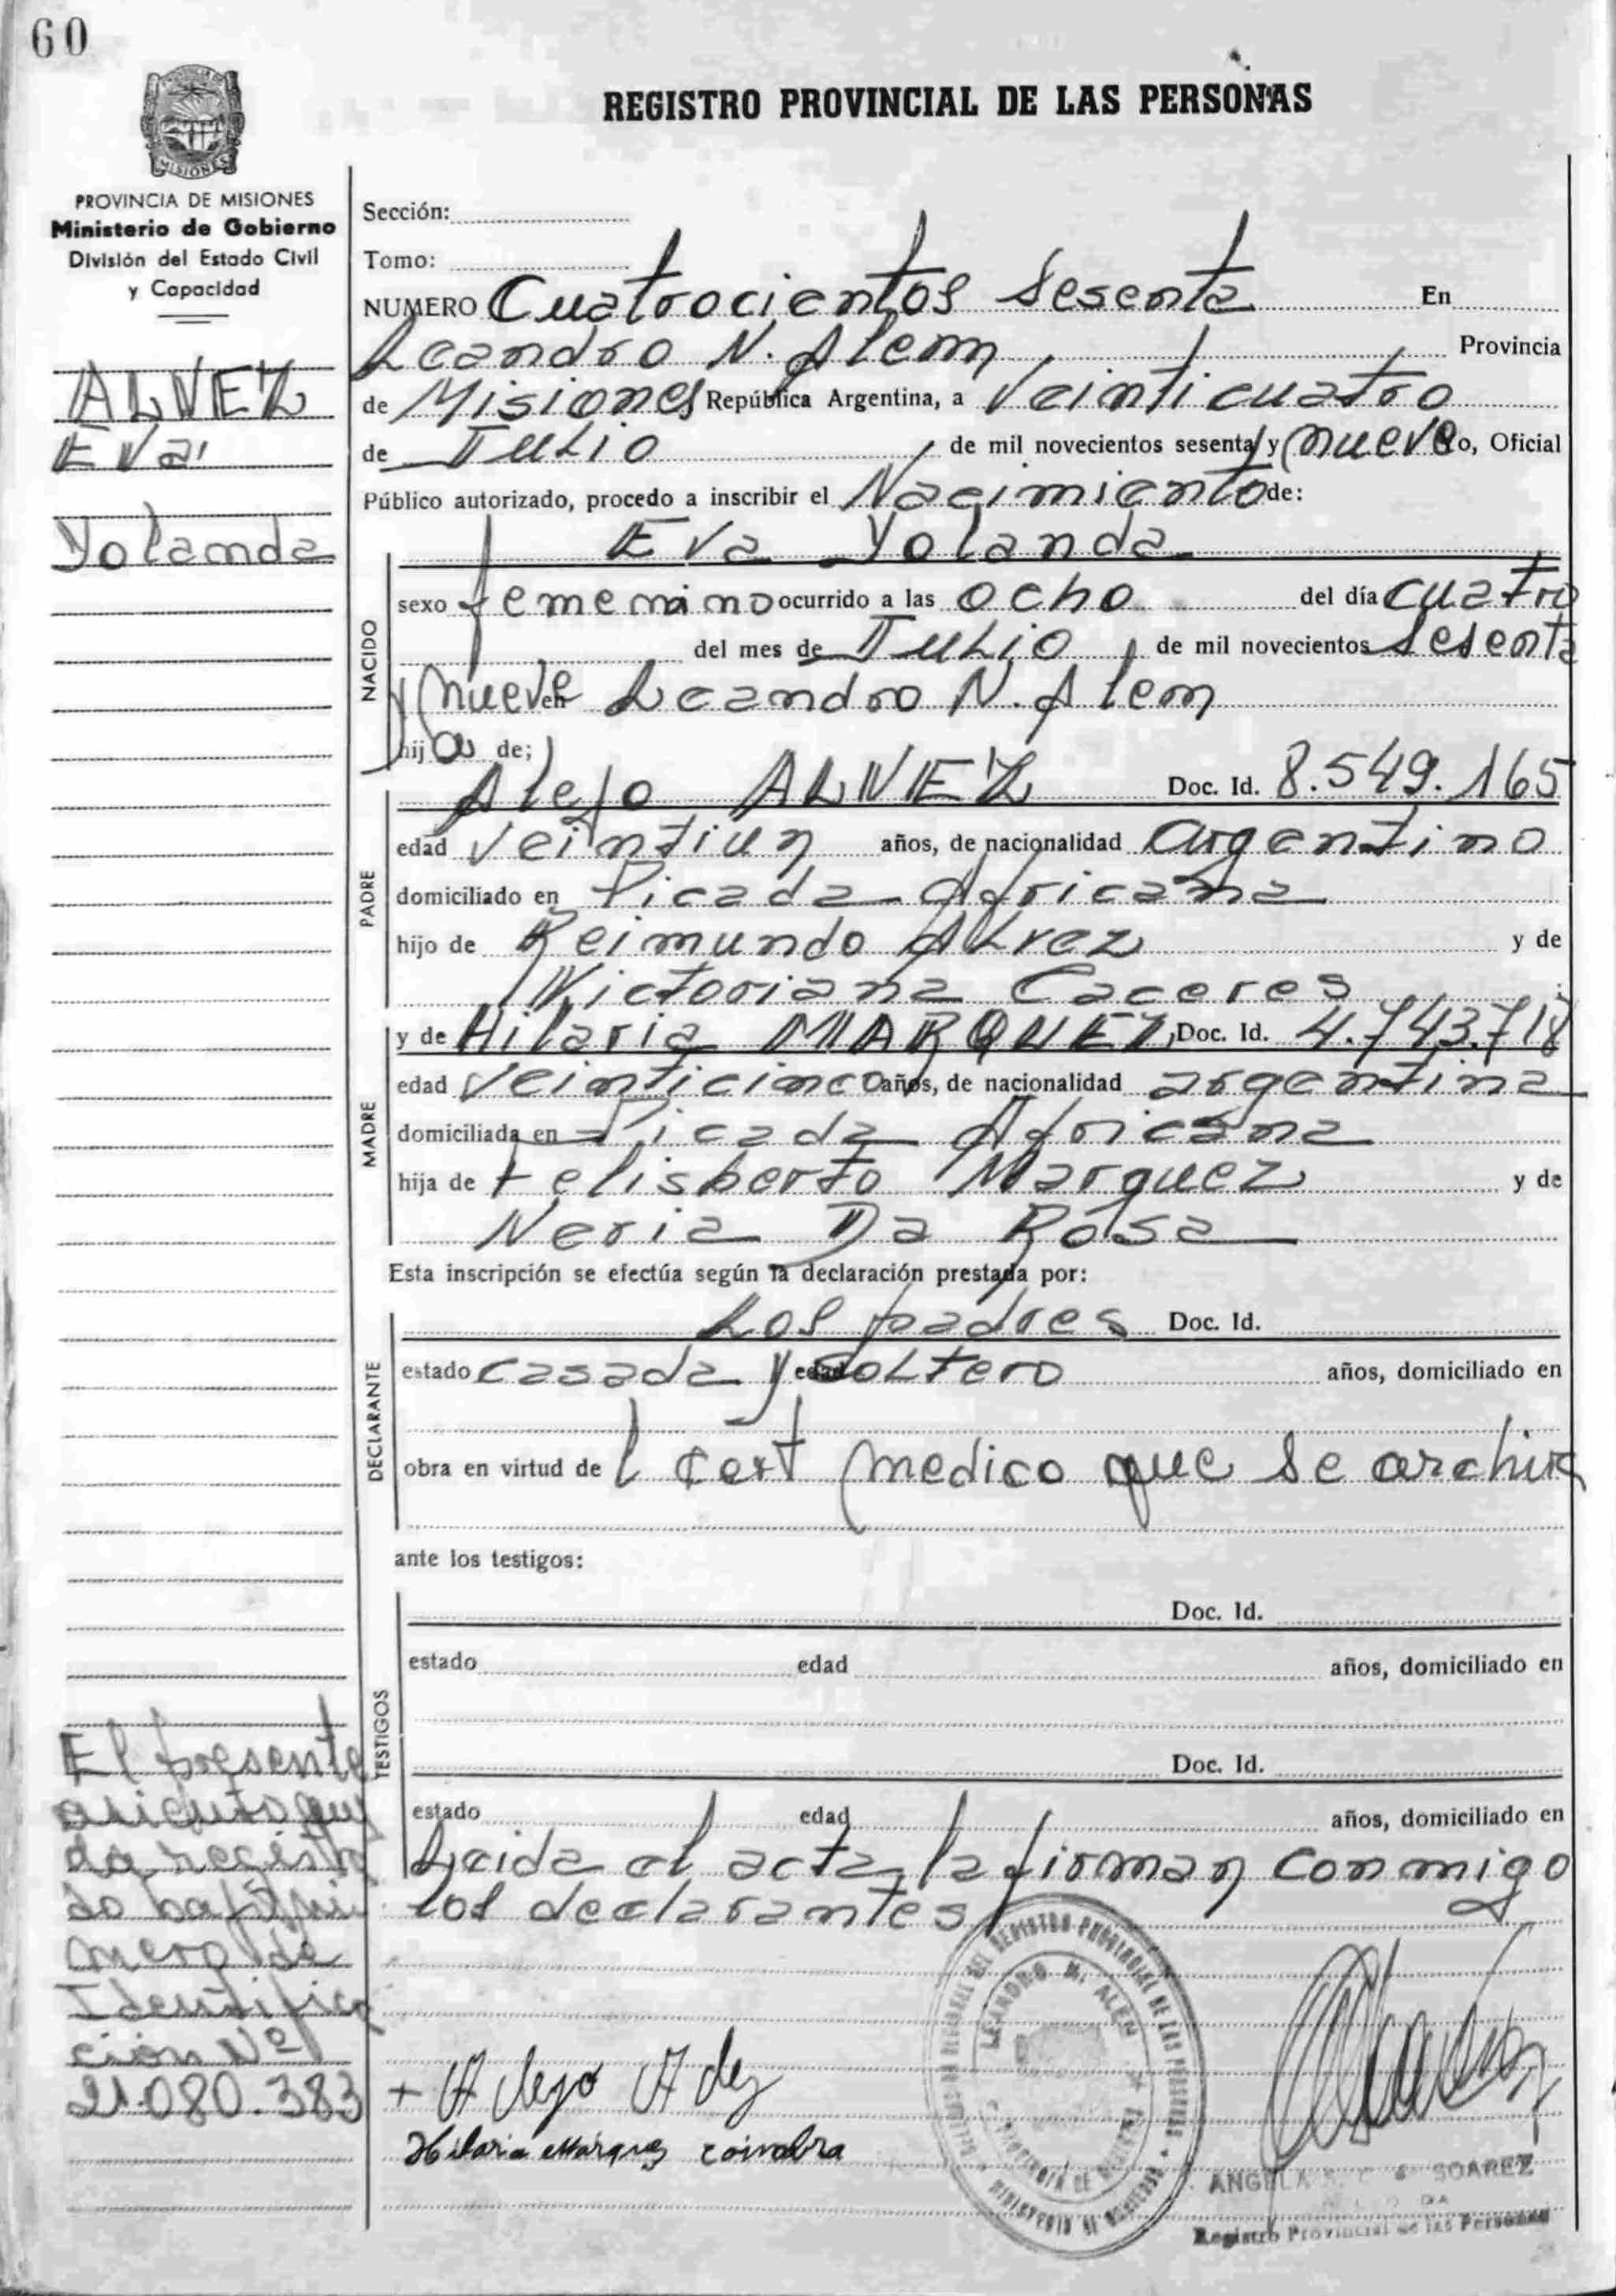 60
REGISTRO PROVINCIAL DE LAS PERSONAS
MISIONES
PROVINCIA DE MISIONES
Ministerio de Gobierno
División del Estado Civil
y Capacidad
ALVEZ
Eva
Yolanda
Sección:
Tomo:
NUMERO Cuatrocientos Sesenta En
Leandro N. Alem Provincia
de Misiones República Argentina, a Veinticuatro
de Julio de mil novecientos sesenta y nueve yo, Oficial
Público autorizado, procedo a inscribir el Nacimiento de:
Eva Yolanda
NACIDO
sexo femenino ocurrido a las ocho del día cuatro
del mes de Julio, de mil novecientos Sesenta
y nueve en Leandro N. Alem
hija de;
PADRE
Alejo ALVEZ Doc. Id. 8.549.165
edad veintiun años, de nacionalidad argentino
domiciliado en Picada Africana
hijo de Reimundo Alvez y de
Victoriana Caceres
MADRE
y de Hilaria MARQUEZ, Doc. Id. 4.743.718
edad veinticinco años, de nacionalidad argentina
domiciliada en Picada Africana
hija de Felisberto Marquez y de
Neria Da Rosa
Esta inscripción se efectúa según la declaración prestada por:
DECLARANTE
Los padres Doc. Id.
estado casada y edad soltero años, domiciliado en
obra en virtud de l cert medico que se archiva
ante los testigos:
TESTIGOS
Doc. Id.
estado edad años, domiciliado en
Doc. Id.
estado edad años, domiciliado en
Leida el acta, la firman conmigo
los declarantes
El presente
asiento que
da registra
do bajo nu
mero de
Identifica
ción Nº
21.080.383
+ Alejo Alvez
Hilaria Marquez coimbra
DEL REGISTRO PROVINCIAL DE LAS PERSONAS
LEANDRO N. ALEM
PROVINCIA DE MISIONES
MINISTERIO DE GOBIERNO
ANGELA SOAREZ
Registro Provincial de las Personas